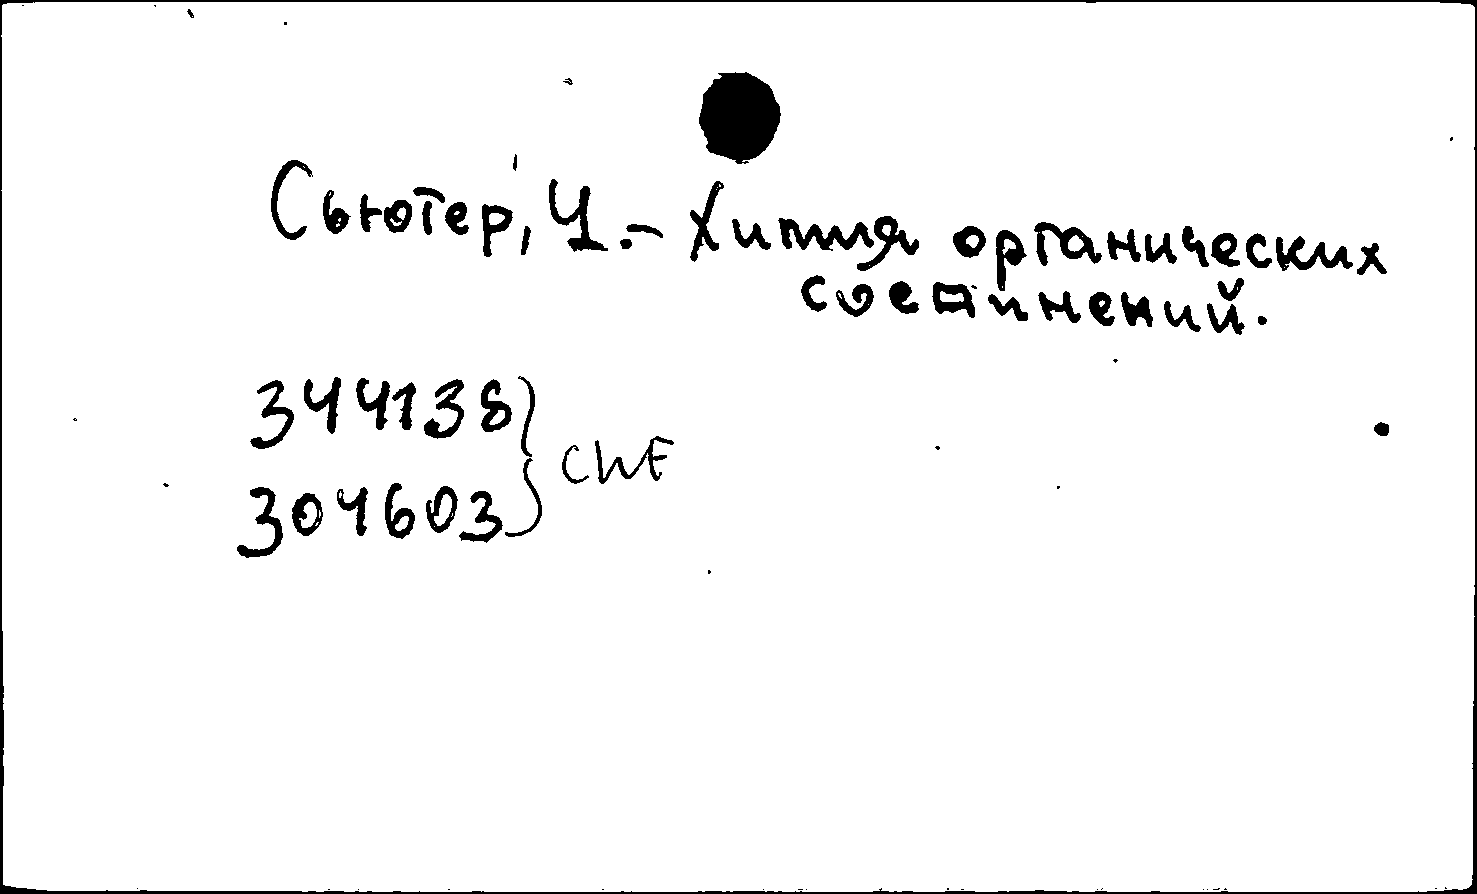 Сьютер, Ч. – Химия органических
соединений.
344138
304603